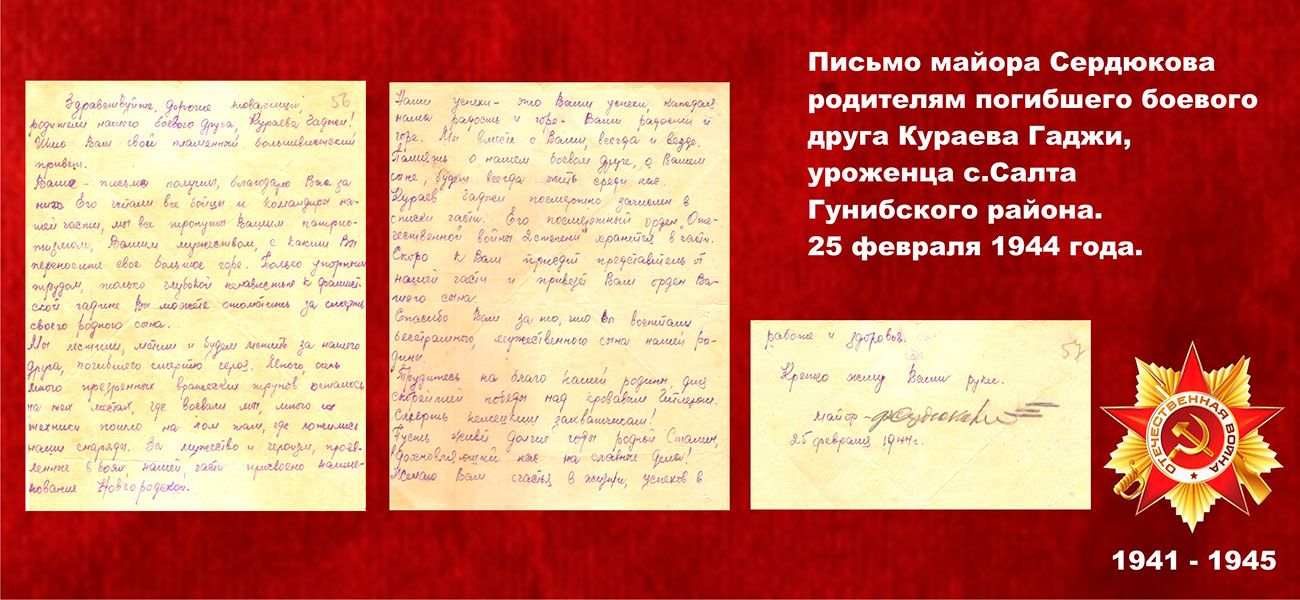 Здравствуйте, дорогие товарищи, 56
родители нашего боевого друга, Кураева Гаджи!
Шлю Вам свой пламенный большевистский
привет.
Ваше - письмо получил, благодарю Вас за
него. Его читали все бойцы и командиры на-
шей части, мы все тронуты Вашим патрио-
тизмом, Вашим мужеством, с каким Вы
переносите свое большое горе. Только упорным
трудом, только глубокой ненавистью к фашист-
ской гадине Вы можете отомстить за смерть
своего родного сына.
Мы мстили, мстим и будем мстить за нашего
друга, погибшего смертью героя. Много, очень
много презренных вражеских трупов осталось
на тех местах, где воевали мы, много их
техники пошло на лом там, где ложились
наши снаряды. За мужество и героизм, прояв-
ленные в боях, нашей части присвоено наиме-
нование Новгородской.
Наши успехи - это Ваши успехи, каждая
наша радость и горе - Ваши радости и
горе. Мы вместе с Вами, всегда и везде.
Память о нашем боевом друге, о Вашем
сыне, будет всегда жить среди нас.
Кураев Гаджи посмертно зачислен в
списки части. Его посмертный орден "Оте-
чественной войны 2 степени" хранится в части.
Скоро к Вам приедет представитель от
нашей части и привезет Вам орден Ва-
шего сына.
Спасибо Вам за то, что Вы воспитали
бесстрашного, мужественного сына нашей ро-
дины.
Трудитесь на благо нашей родины, для
скорейшей победы над кровавым Гитлером.
Смерть немецким захватчикам!
Пусть живет долгие годы родный Сталин,
вдохновляющий нас на славные дела!
Желаю Вам счастья в жизни, успехов в
работе и здоровья. 57
Крепко жму Ваши руки.
майор -
25 февраля 1944 г.
Письмо майора Сердюкова
родителям погибшего боевого
друга Кураева Гаджи,
уроженца с.Салта
Гунибского района.
25 февраля 1944 года.
ОТЕЧЕСТВЕННАЯ ВОЙНА
1941 - 1945